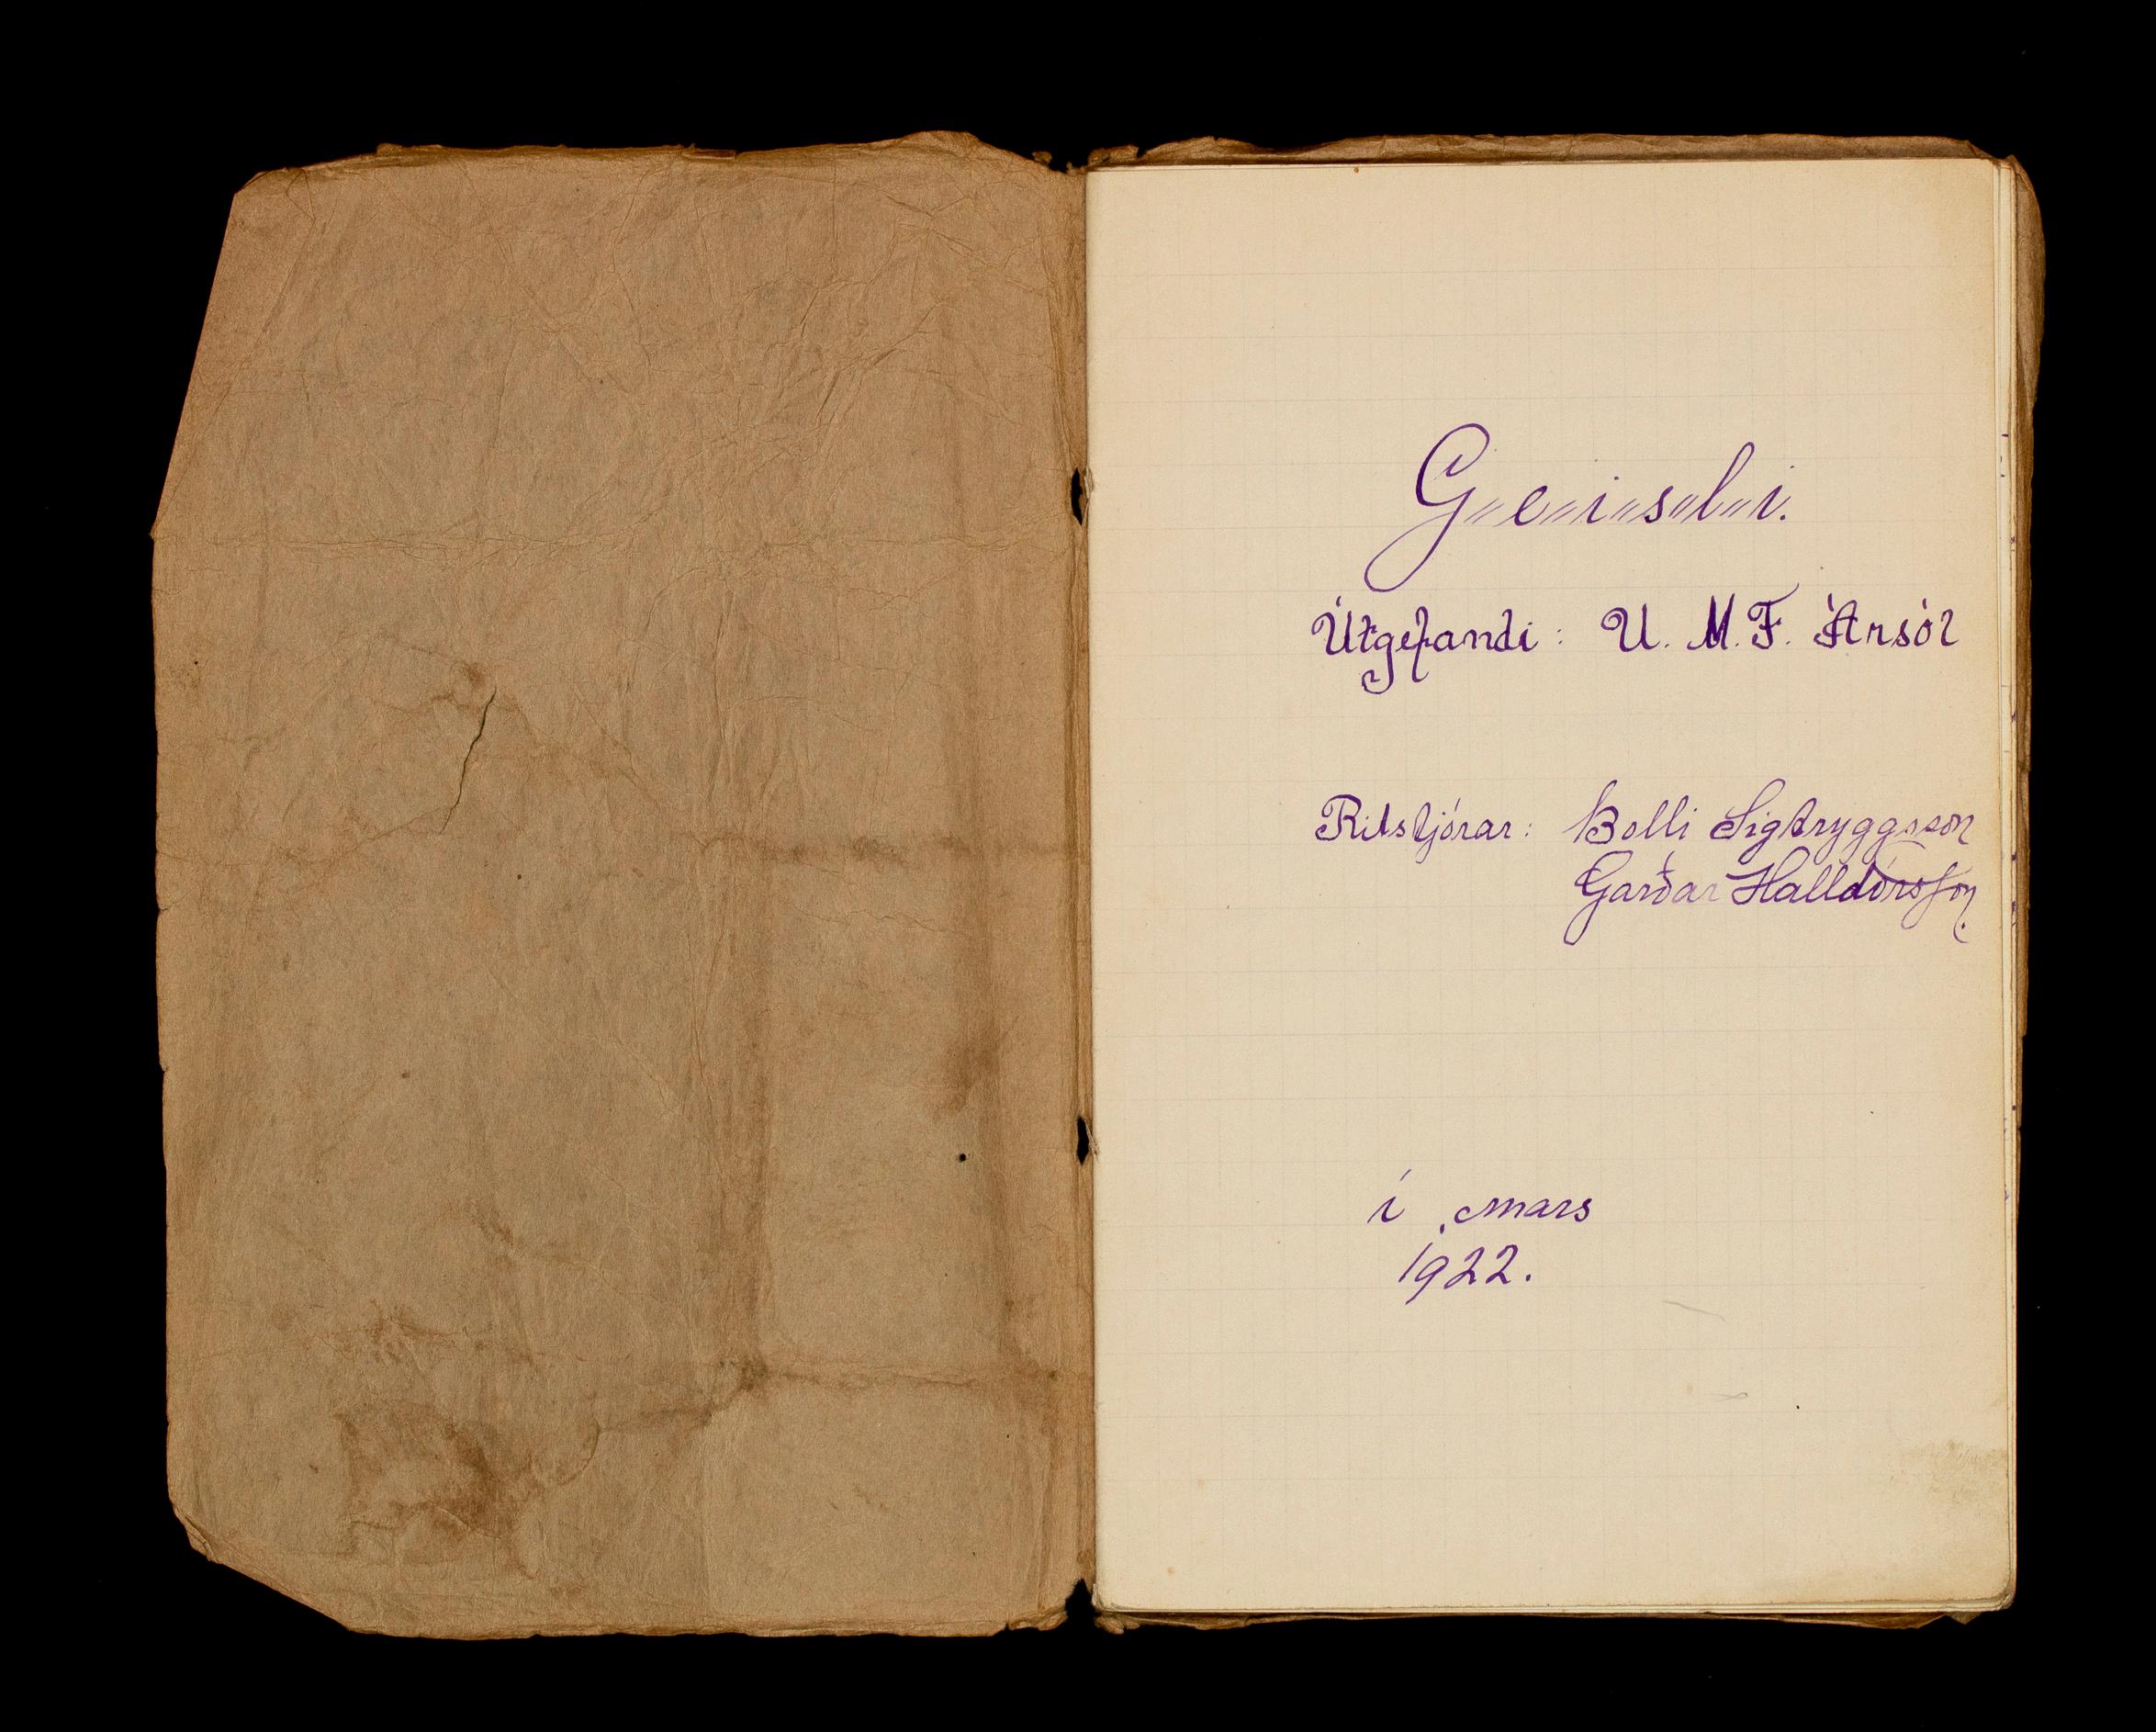 G„e„i„s„l„i.
Útgefandi: U. M. F. Ársól
Ritstjórar: Bolli Sigtryggsson
Garðar Halldórsson.
í mars
1922.